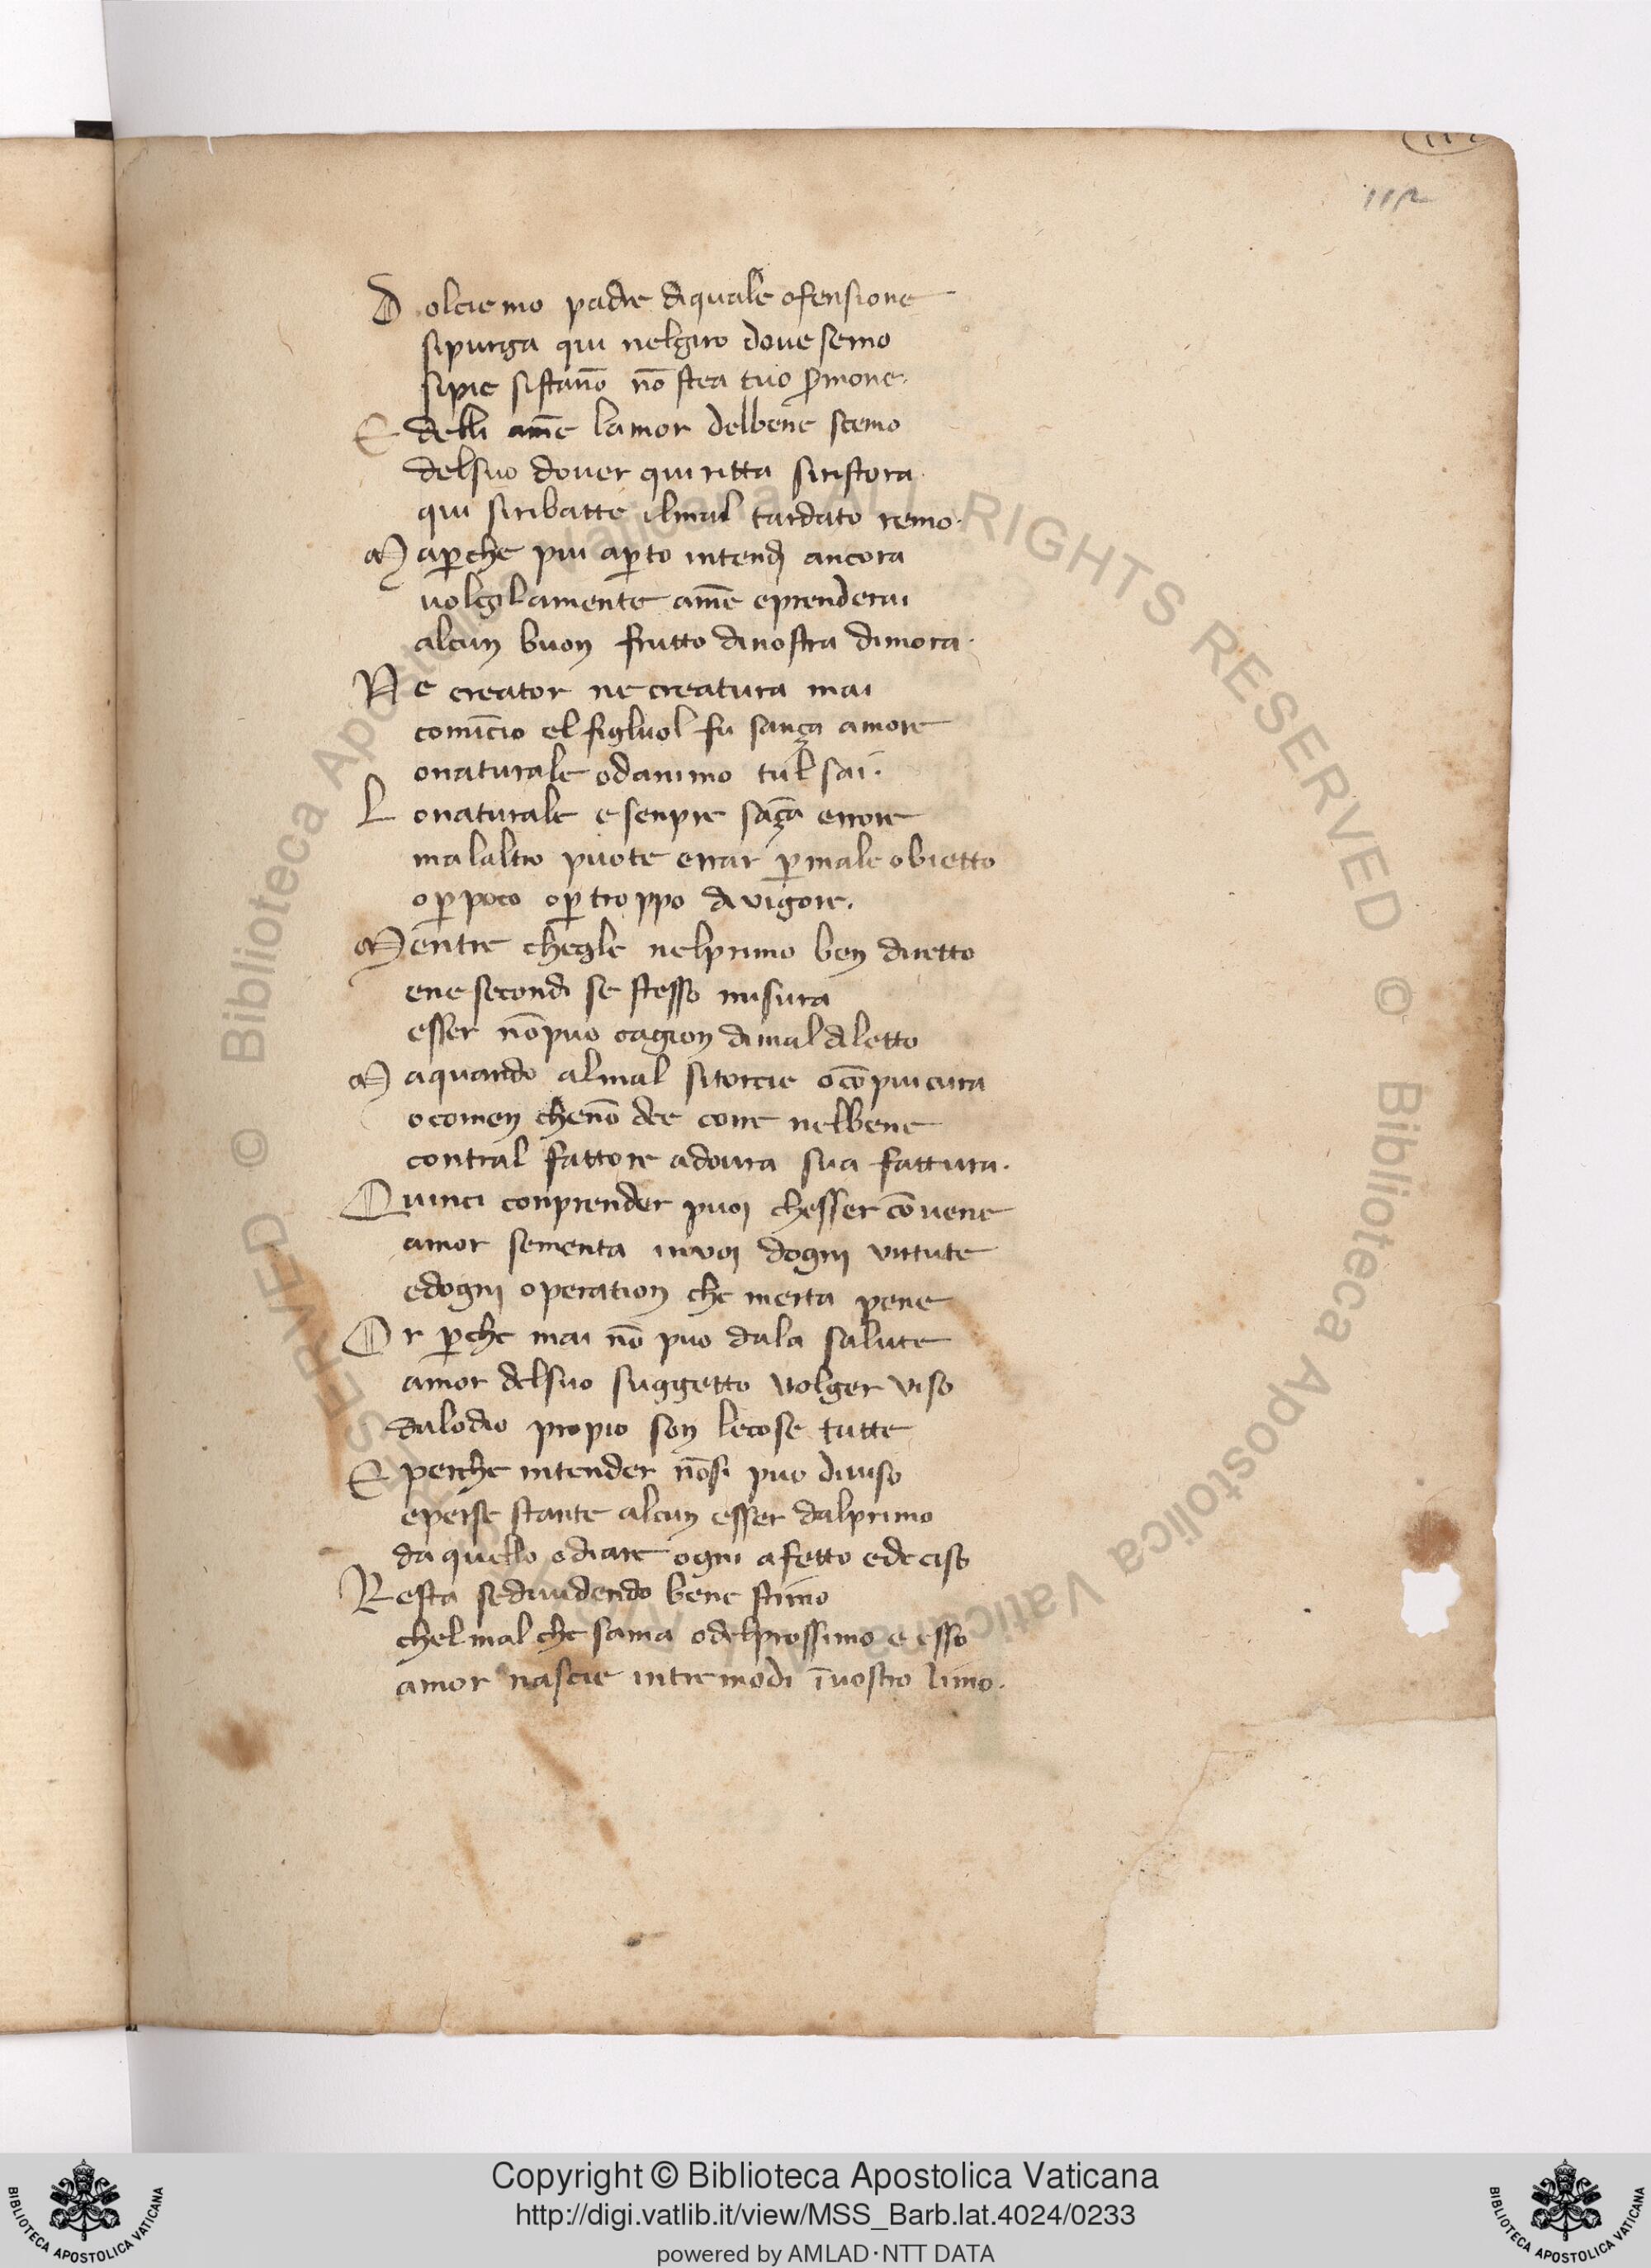 112
Dolcie mo padre diquale ofensione
sipurga qui nelgiro doue semo
sipie sistāno nō stea tuo s̄mone.
E delli ame lamor delbene scemo
delsuo douer qui ritta siristora.
qui siribatte ilmal tardato remo.
Map̄che piu ap̄to intendj ancora
uolgi lamente ame eprenderai
alcun buon frutto dinostra dimora.
Ne creator ne creatura mai
comīcio el figluol fu sança amore
onaturale odanimo tul sai.
Lonaturale e senpre sāça errore
malaltro puote errar p̄ male obietto
op̄ poco op̄ troppo di vigore.
Mentre chegle nelprimo ben diretto
ene secondi se stesso misura
esser nōpuo cagion dimal diletto
Maquando almal sitorcie o cō piu cura
o comen chenō dee corre nelbene
contral fattore adoura sua fattura.
Quinci conprender puoi chesser cōuene
amor sementa inuoi dogni uirtute
edogni operation che merta pene
Or p̄che mai nō puo dala salute
amor delsuo suggetto volger viso
dalodio propio son lecose tutte
E perche intender nōsi puo diuiso
eperse stante alcun esser dalprimo
da quello odiare ogni afetto e deciso
Resta sediuidendo bene stimo
chel mal che sama odelprossimo e esso
amor nascie intre modi ī uostro limo.
© Biblioteca Apostolica Vaticana ALL RIGHTS RESERVED © Biblioteca Apostolica Vaticana ALL RIGHTS RESERVED
Copyright © Biblioteca Apostolica Vaticana
http://digi.vatlib.it/view/MSS_Barb.lat.4024/0233
powered by AMLAD·NTT DATA
BIBLIOTECA APOSTOLICA VATICANA
BIBLIOTECA APOSTOLICA VATICANA